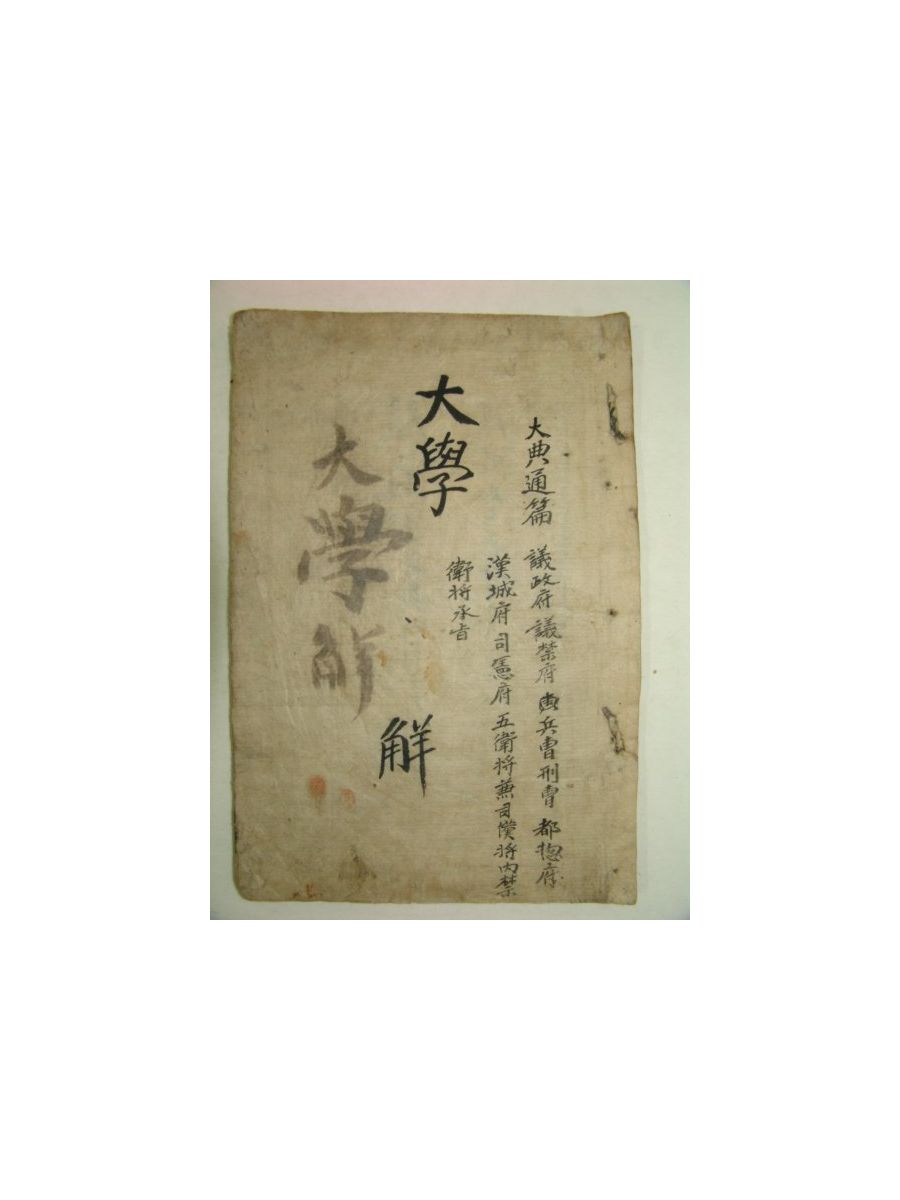 大典通篇 議政府 議禁府 兵曺刑曺 都捴府
漢城府 司憲府 五衛將兼司僕將內禁
衛將承旨
大學
解
大學解